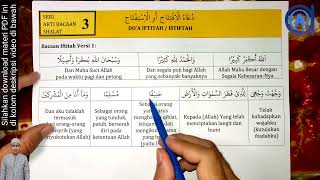 SERI
ARTI BACAAN
SHALAT
3
دُعَاءُ الْاِفْتِتَاحِ أَوِ الْاِسْتِفْتَاحِ
DO'A IFTITAH / ISTIFTAH
Bacaan Iftitah Versi 1:
اَللهُ أَكْبَرُ كَبِيْرًا
وَالْحَمْدُ لِلّٰهِ كَثِيْرًا
وَسُبْحَانَ اللهِ بُكْرَةً وَأَصِيْلًا
Allah Maha Besar dengan
Segala Kebesaran-Nya
Dan segala puji bagi Allah
yang sebanyak-banyaknya
Dan Maha Suci Allah
pada waktu pagi dan petang
وَجَّهْتُ وَجْهِيَ
لِلَّذِيْ فَطَرَ السَّمَوَاتِ وَالْأَرْضَ
حَنِيْفًا
مُسْلِمًا
وَمَا أَنَا مِنَ الْمُشْرِكِيْنَ
Telah
kuhadapkan
wajahku
Kepada (Allah) Yang telah
menciptakan langit dan
bumi
Sebagai orang
Sebagai orang
yang tunduk,
patuh, berserah
diri pada
ketentuan Allah
Dan aku tidaklah
termasuk
Silahkan download materi PDF nya
di kolom deskripsi video di bawah